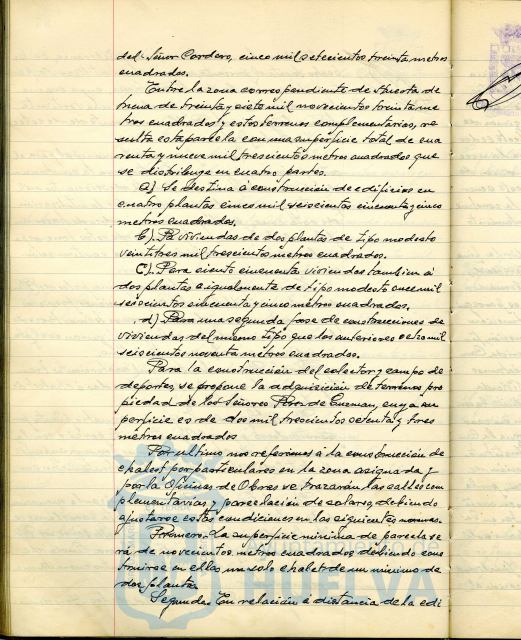 del Señor Cordero, cinco mil setecientos treinta metros
cuadrados.
Entre la zona correspondiente de Huerta de
mena de treinta y siete mil novecientos treinta me
tros cuadrados y estos terrenos complementarios, re
sulta esta parcela con una superficie total de cua
renta y nueve mil trescientos metros cuadrados que
se distribuye en cuatro partes.
a) Se destina á construcción de edificios en
cuatro plantas cinco mil seiscientos cincuenta y cinco
metros cuadrados.
b). Pa viviendas de dos plantas de tipo modesto
veintitres mil trescientos metros cuadrados.
C). Para ciento cincuenta viviendas tambien á
dos plantas e igualmente de tipo modesto once mil
seiscientos cincuenta y cinco metros cuadrados.
d) Para una segunda fase de construcciones de
viviendas del mismo tipo que los anteriores ocho mil
seiscientos noventa metros cuadrados.
Para la construcción del colector y campo de
deportes, se propone la adquisición de terrenos pro
piedad de los Señores Perez de Guzman, cuya su
perficie es de dos mil trescientos setenta y tres
metros cuadrados
Por ultimo nos referimos á la construcción de
chalest por particulares en la zona asignada y
por la Oficina de Obras se trazarán las calles com
plementarias y parcelación de solares, debiendo
ajustarse estas condiciones en las siguientes normas.
Primero. La superficie minima de parcela se
rá de novecientos metros cuadrados debiendo cons
truirse en ellas un solo chalet de un minimo de
dos plantas
Segundo. En relación á distancia de la edi
HUELVA